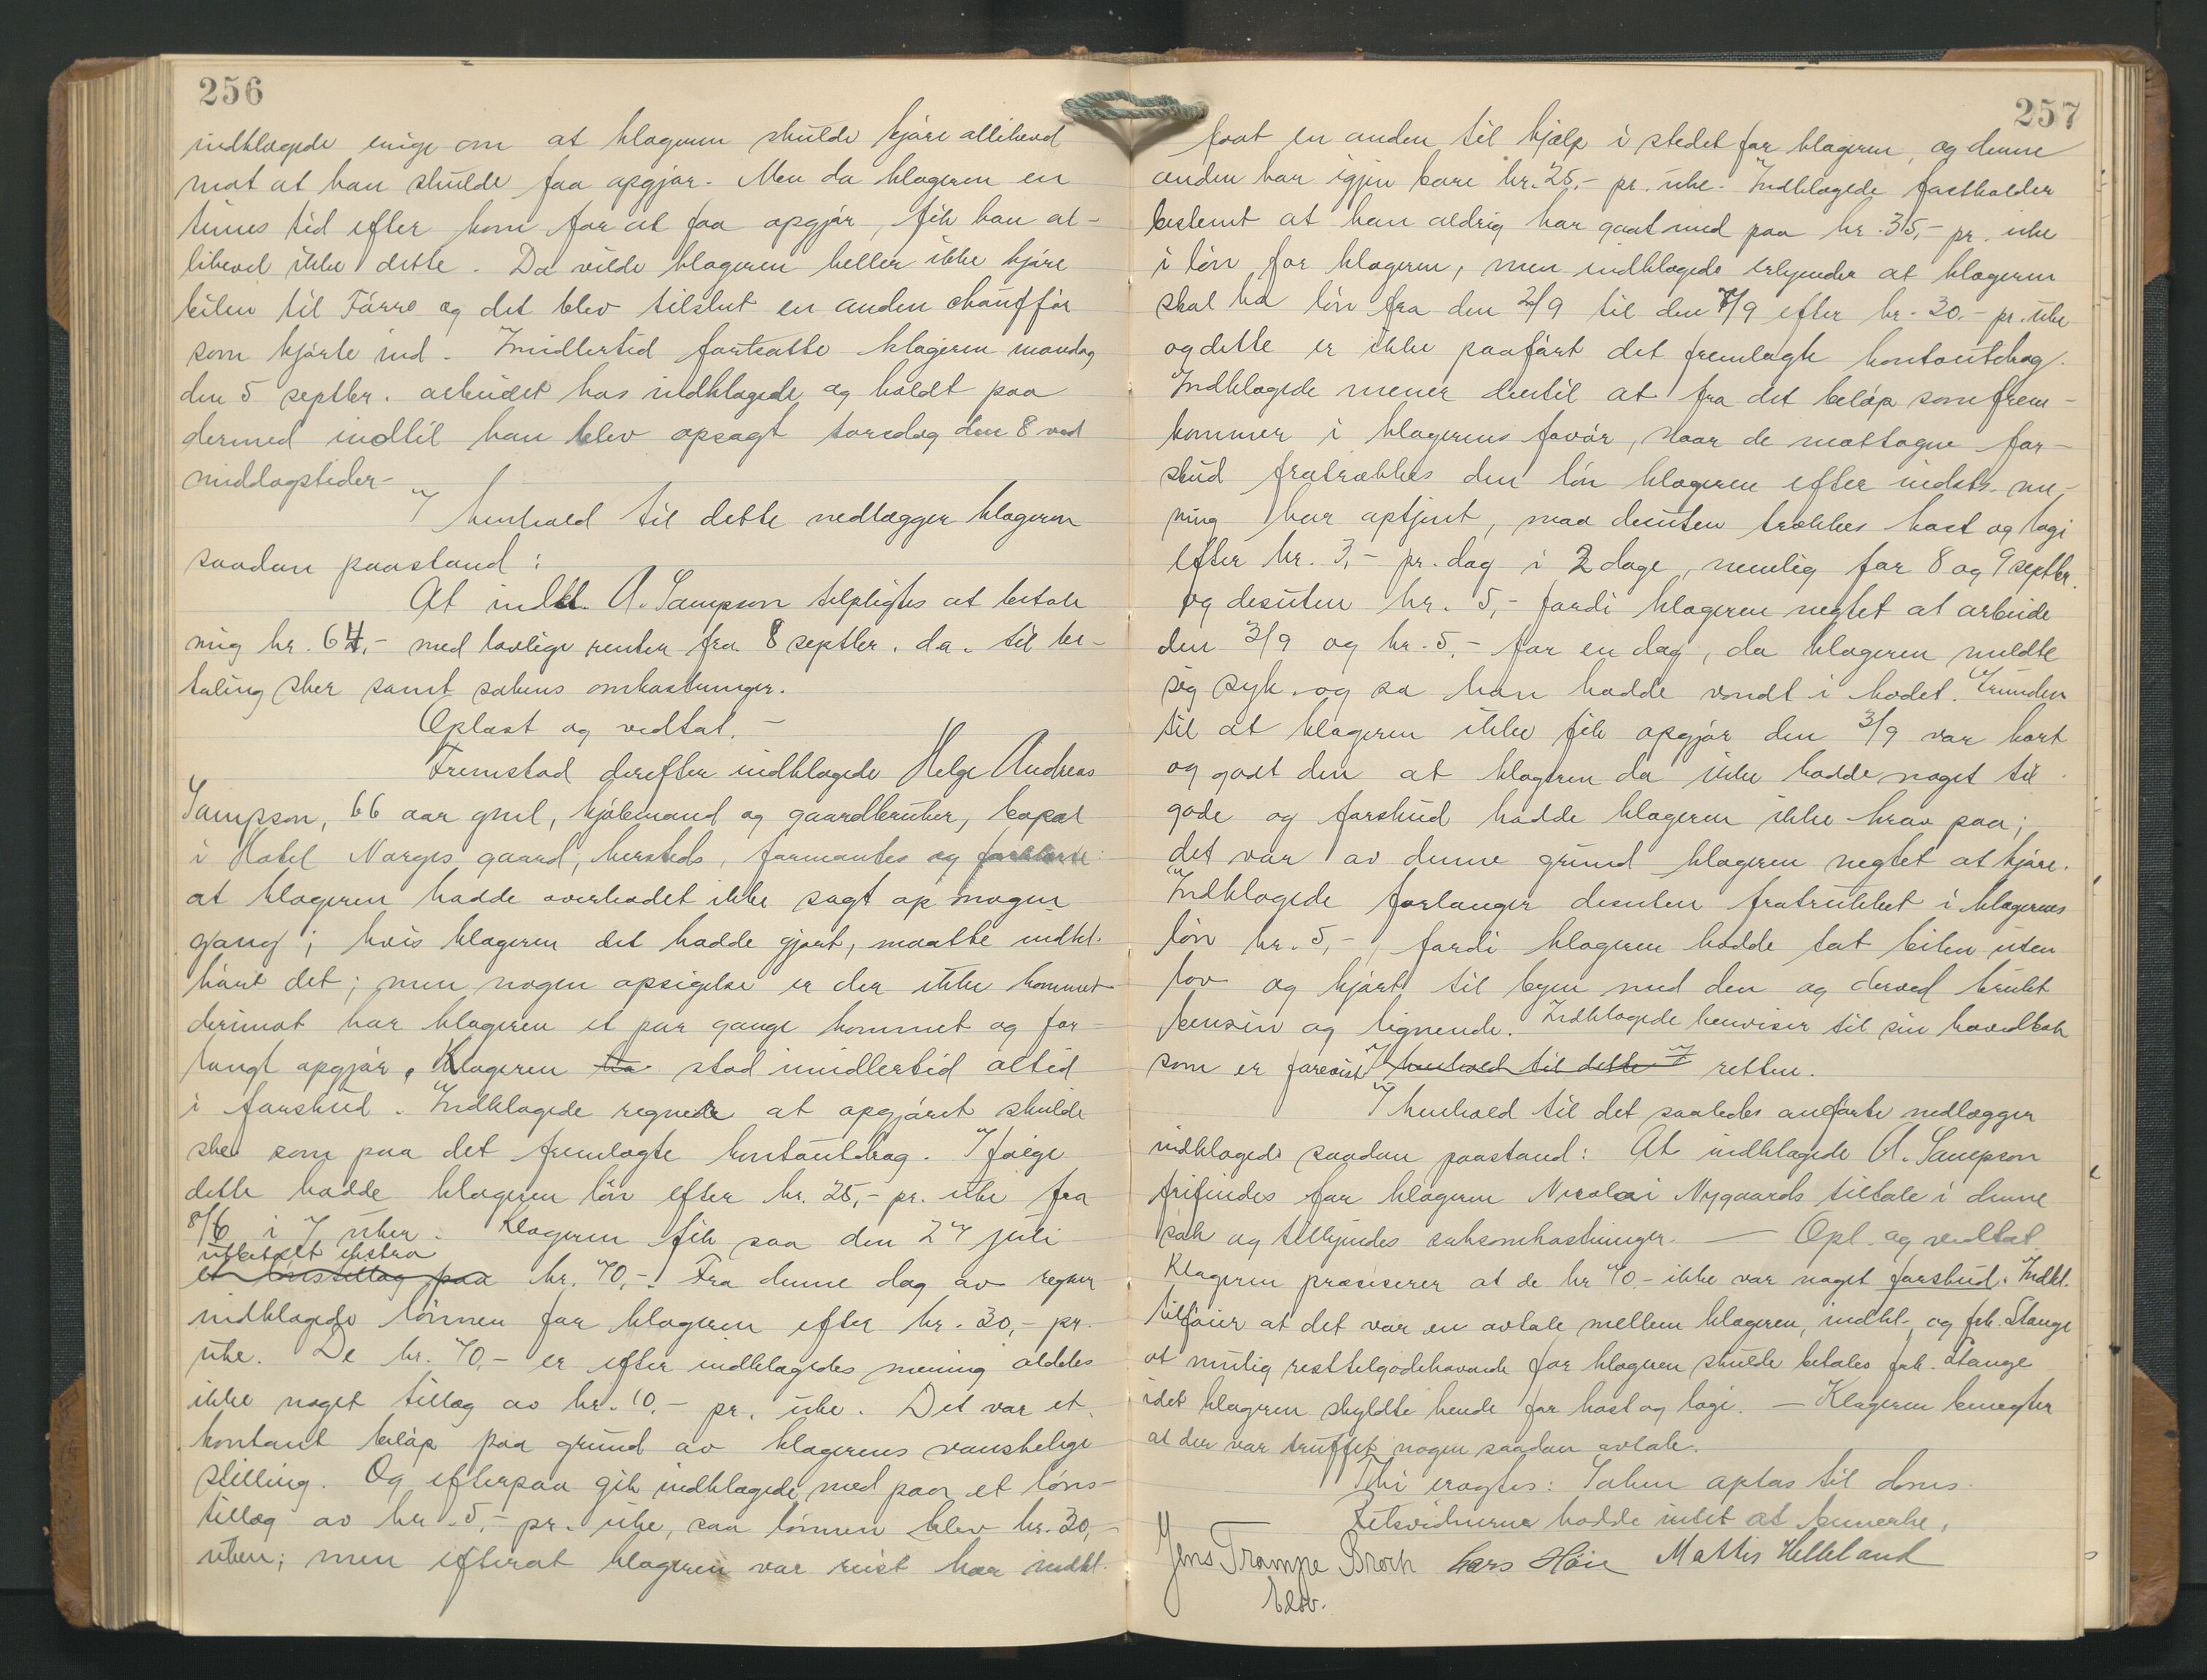 256
indklagede enige om at klageren skulde kjøre allikevel
mot at han skulde faa opgjør. Men da klageren en
times tid efter kom for at faa opgjør, fik han al-
likevel ikke dette. Da vilde klageren heller ikke kjøre
bilen til Førre og det blev tilslut en anden chauffør
som kjørte ind. Imidlertid fortsatte klageren mandag
den 5 septbr. arbeidet hos indklagede og holdt paa
dermed indtil han blev opsagt torsdag den 8 ved
middagstider-
I henhold til dette nedlægger klageren
saadan paastand:
At indkl. A. Sampson tilpligtes at betale
mig kr. 64,- med lovlige renter fra 8 septbr. d.a. til be-
taling sker samt sakens omkostninger.
Oplæst og vedtat.-
Fremstod derefter indklagede Helge Andreas
Sampson, 66 aar gml, kjøbmand og gaardbruker, bopæl
i Hotel Norges gaard, hersteds, formantes og forklarte:
at klageren hadde overhodet ikke sagt op nogen
gang; hvis klageren det hadde gjort, maatte indkl.
hørt det; men nogen opsigelse er der ikke kommet
derimot har klageren et par gange kommet og for-
langt opgjør. Klageren ha stod imidlertid altid
i forskud. Indklagede regnede at opgjøret skulde
ske som paa det fremlagte kontoutdrag. Ifølge
dette hadde klageren løn efter kr. 25,- pr. uke fra
8/6 i 7 uker. Klageren fik saa den 27 juli
utbetalt ekstra
et lønstillæg paa kr. 70,-. Fra denne dag av regner
indklagede lønnen for klageren efter kr. 30,- pr.
uke. De kr. 70,- er efter indklagedes mening aldeles
ikke noget tillæg av kr. 10,- pr. uke. Det var et
kontant beløp paa grund av klagerens vanskelige
stilling. Og efterpaa gik indklagede med paa et løns-
tillæg av kr. 5,- pr. uke, saa lønnen blev kr. 30,-
uken; men efterat klageren var reist har indkl.
257
faat en anden til hjælp i stedet for klageren, og denne
anden har igjen bare kr. 25,- pr. uke. Indklagede fastholder
bestemt at han aldrig har gaat med paa kr. 35,- pr. uke
i løn for klageren, men indklagede erkjender at klageren
skal ha løn fra den 2/9 til den 7/9 efter kr. 30,- pr. uke
og dette er ikke paaført det fremlagte kontoutdrag.
Indklagede mener dertil at fra det beløp som frem-
kommer i klagerens favør, naar de mottagne for-
skud fratrækkes den løn klageren efter indkls. me-
ning har optjent, maa desuten trækkes kost og logi
efter kr. 3,- pr. dag i 2 dage, nemlig for 8 og 9 septbr.
og desuten kr. 5,- fordi klageren negtet at arbeide
den 3/9 og kr. 5,- for en dag, da klageren meldte
sig syk og sa han hadde vondt i hodet. Grunden
til at klageren ikke fik opgjør den 3/9 var kort
og godt den at klageren da ikke hadde noget til
gode og forskud hadde klageren ikke krav paa;
det var av denne grund klageren negtet at kjøre.
Indklagede forlanger desuten fratrukket i klagerens
løn kr. 5,-, fordi klageren hadde tat bilen uten
lov og kjørt til byen med den og derved brukt
bensin og lignende. Indklagede henviser til sin hovedbok
som er forevist I henhold til dette I retten.
I henhold til det saaledes anførte nedlægger
indklagede saadan paastand: At indklagede A. Sampson
frifindes for klageren Nicolai Nygaards tiltale i denne
sak og tilkjendes saksomkostninger. — Opl. og vedtat
Klageren præsiserer at de kr 70.- ikke var noget forskud. Indkl.
tilføier at det var en avtale mellem klageren, indkl. og frk. Stange
at mulig resttilgodehavende for klageren skulde betales frk. Stange
idet klageren skyldte hende for kost og logi. — Klageren benegter
at der var truffet nogen saadan avtale.
Thi eragtes: Saken optas til doms.
Retsvidnerne hadde intet at bemerke.
Jens Trampe Broch Lars Høie Mattis Helleland